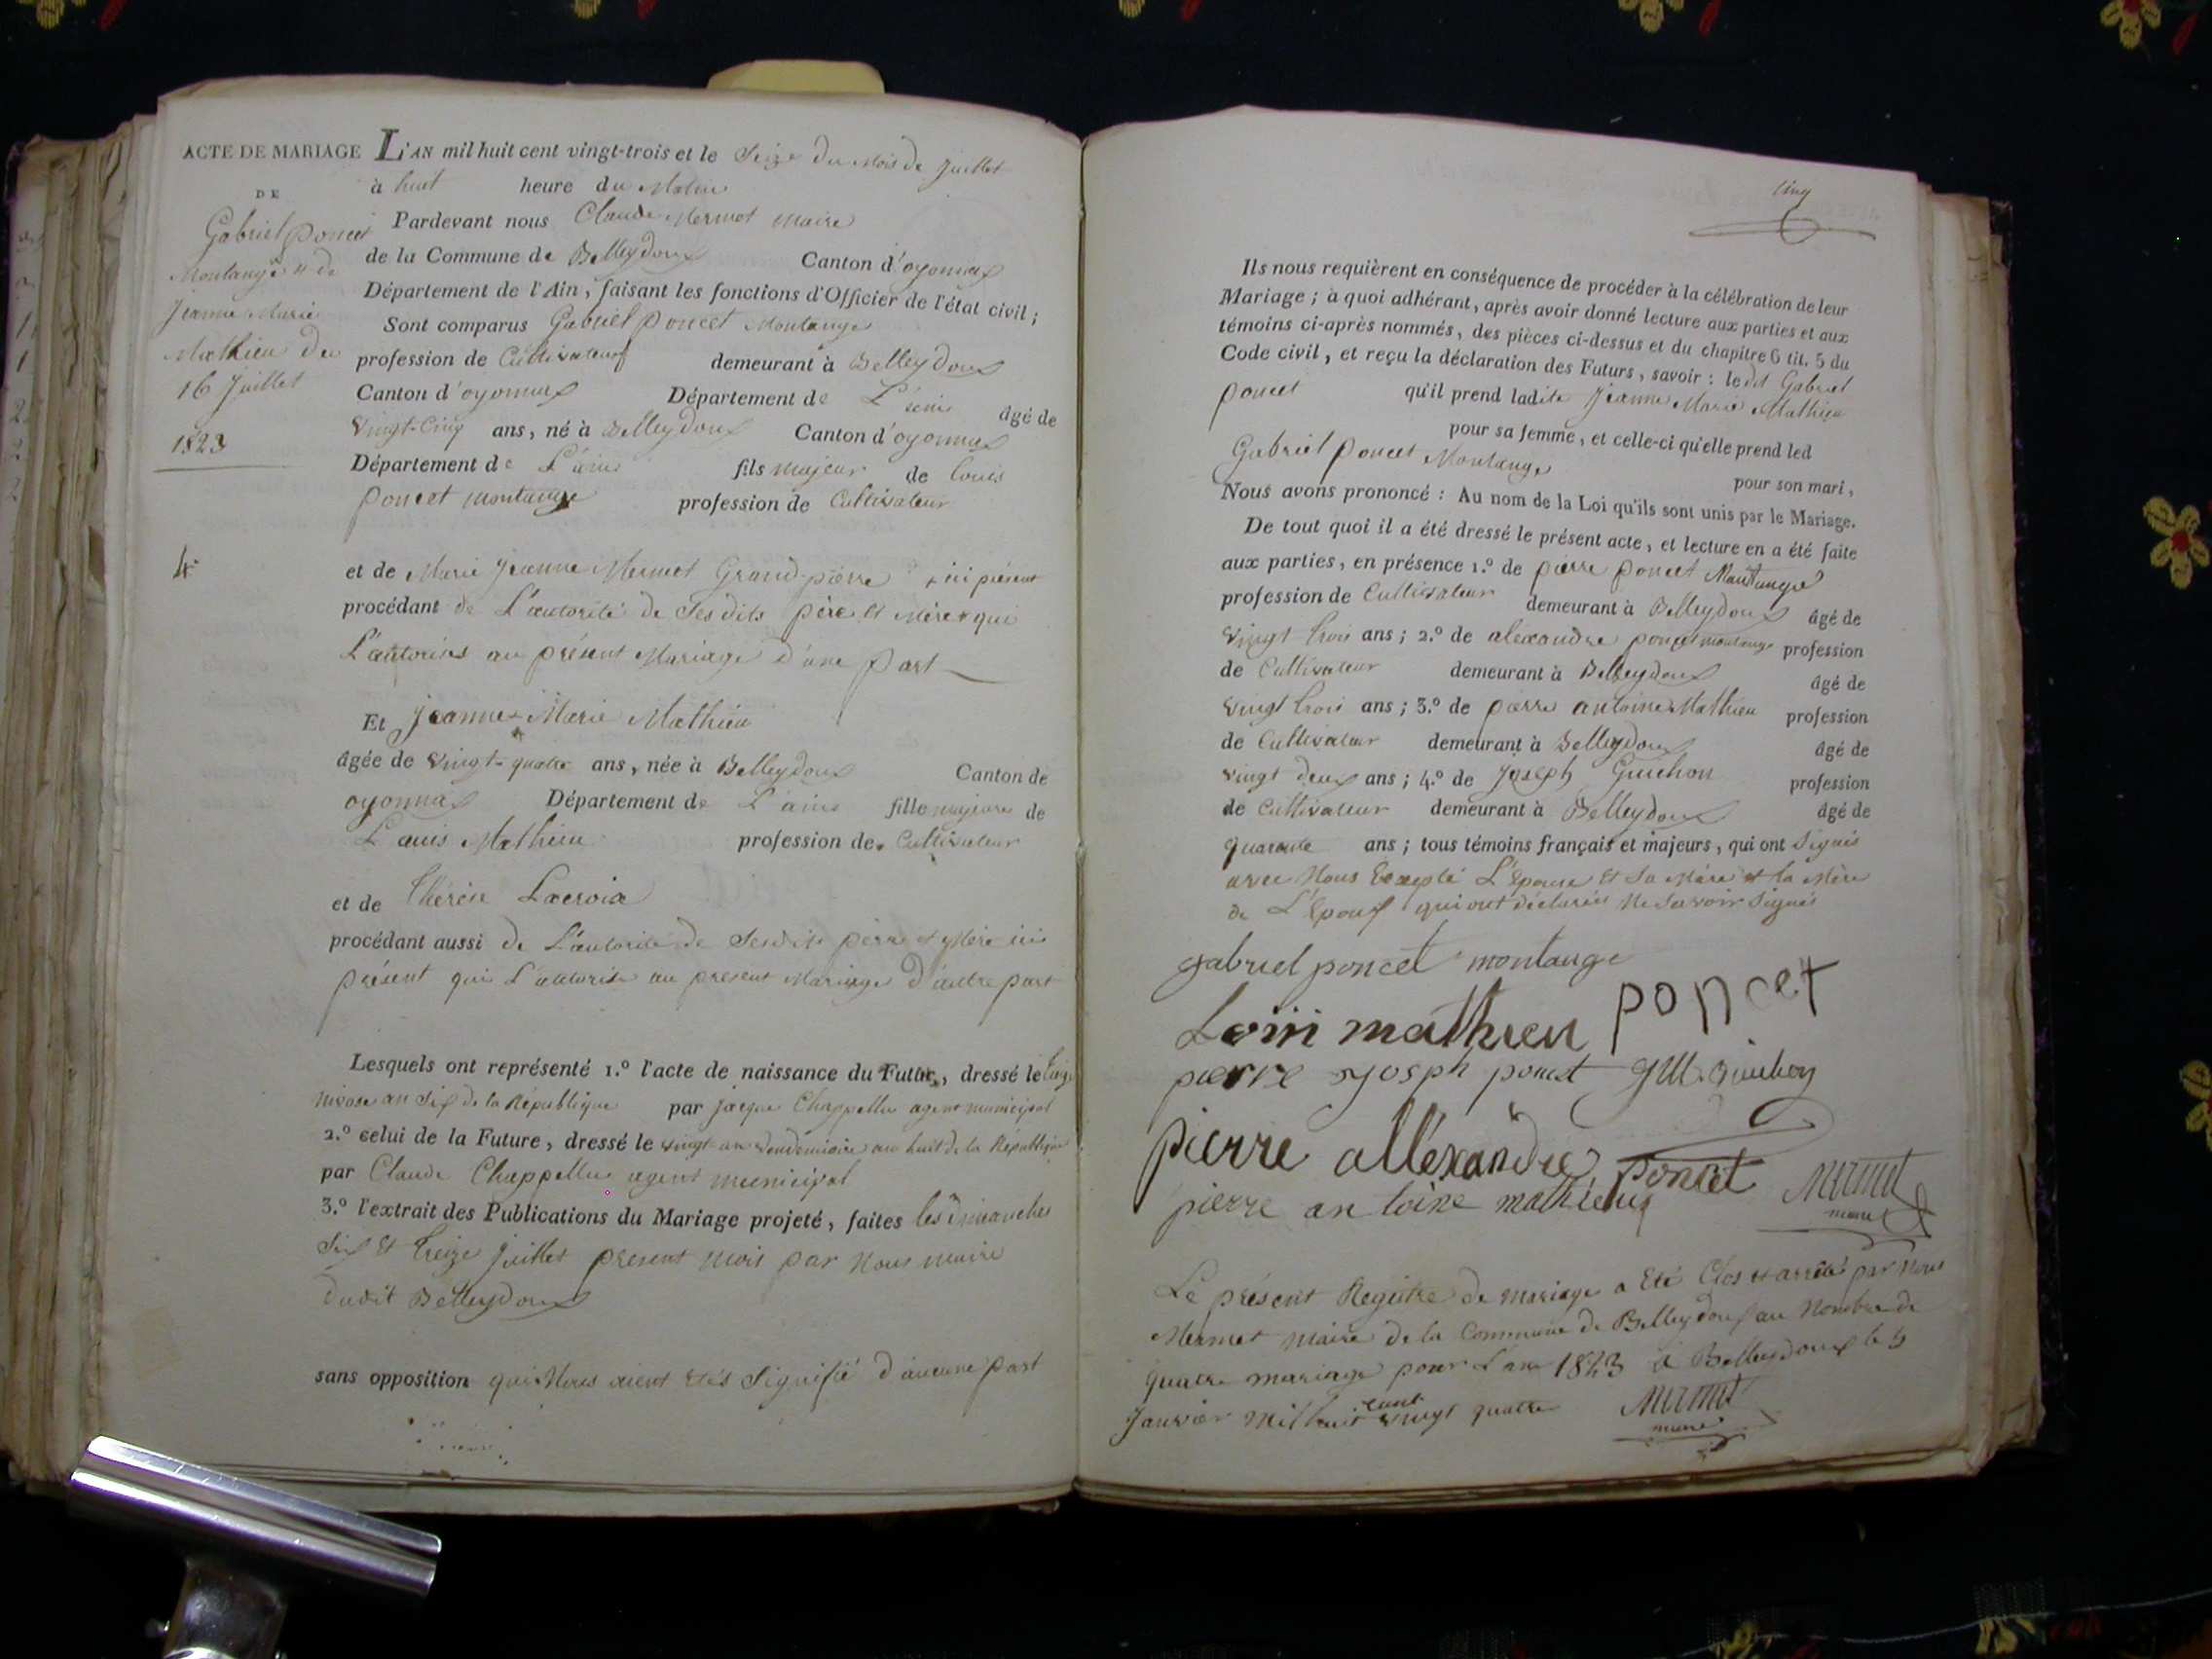 ACTE DE MARIAGE
DE
Gabriel poncet
Montange & de
Jeanne Marie
Mathieu du
16 Juillet
1823
4e
L'AN mil huit cent vingt-trois et le Seize du Mois de Juillet
à huit heure du Matin
Pardevant nous Claude Mermet Maire
de la Commune de Belleydoux Canton d'oyonnax
Département de l'Ain, faisant les fonctions d'Officier de l'état civil;
Sont comparus Gabriel poncet Montange
profession de Cultivateur demeurant à Belleydoux
Canton d'oyonnax Département de L'ain âgé de
Vingt-Cinq ans, né à Belleydoux Canton d'oyonnax
Département de L'ain fils majeur de louis
poncet montange profession de Cultivateur
et de Marie Jeanne Mermet Grand-pierre ici présent
procédant de L'autorité de Ses dits père et Mère qui
L'autorises au présent Mariage d'une part
Et Jeanne-Marie Mathieu
âgée de Vingt-quatre ans, née à Belleydoux Canton de
oyonnax Département de L'ain fille majeure de
Louis Mathieu profession de Cultivateur
et de thérèse Lacroix
procédant aussi de L'autorité de Sesdits père et Mère ici
présent qui L'autorise au présent Mariage d'autre part
Lesquels ont représenté 1.º l'acte de naissance du Futur, dressé le
nivose an Six de la République par Jacque Chappellu agent municipal
2.º celui de la Future, dressé le vingt un vendemiaire an huit de la République
par Claude Chappellu agent municipal
3.º l'extrait des Publications du Mariage projeté, faites les dimanches
Six et treize Juillet present mois par Nous maire
dudit Belleydoux
sans opposition qui Nous aient étés Signifié d'aucune part
cinq
Ils nous requièrent en conséquence de procéder à la célébration de leur
Mariage; à quoi adhérant, après avoir donné lecture aux parties et aux
témoins ci-après nommés, des pièces ci-dessus et du chapitre 6 tit. 5 du
Code civil, et reçu la déclaration des Futurs, savoir: le dit Gabriel
poncet qu'il prend ladite Jeanne Marie Mathieu
pour sa femme, et celle-ci qu'elle prend led
Gabriel poncet Montange pour son mari,
Nous avons prononcé: Au nom de la Loi qu'ils sont unis par le Mariage.
De tout quoi il a été dressé le présent acte, et lecture en a été faite
aux parties, en présence 1.º de pierre poncet Montange
profession de Cultivateur demeurant à Belleydoux âgé de
Vingt trois ans; 2.º de alexandre poncet montange profession
de Cultivateur demeurant à Belleydoux âgé de
Vingt trois ans; 3.º de pierre antoine Mathieu profession
de Cultivateur demeurant à Belleydoux âgé de
vingt deux ans; 4.º de Joseph Guichon profession
de Cultivateur demeurant à Belleydoux âgé de
quarante ans; tous témoins français et majeurs, qui ont Signés
avec Nous Excepté L'Epouse et Sa Mère et la Mère
de L'Epoux qui ont déclarées Ne Savoir Signés
gabriel poncet montange
Louis mathieu poncet
pierre Josph poncet guichon
pierre alléxandre poncet
pierre antoine mathieu
Mermet
maire
Le présent Registre de mariage a Eté Clos et arrêté par Nous
Mermet Maire de la Commune de Belleydoux au Nombre de
quatre mariage pour L'an 1823 à Belleydoux le
Janvier Mil huit cent vingt quatre
Mermet
maire